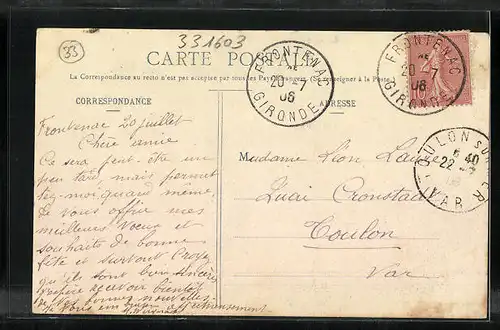 331603
33
CARTE POSTALE
La Correspondance au recto n'est pas acceptée par tous les Pays Etrangers. (Se renseigner à la Poste)
CORRESPONDANCE
ADRESSE
FRONTENAC
20 -7
06
GIRONDE
FRONTENAC
20
06
GIRONDE
TOULON SUR MER
5 40
22
VAR
Frontenac 20 juillet
Chère amie
Ce sera peut-être un
peu tard mais permet
tez-moi, quand même,
Je vous offre mes
meilleurs Vœux et
souhaits de bonne
fête et surtout Croyez
qu'ils sont bien sincères
J'espère recevoir bientôt
de vos bonnes nouvelles
Je vous
Madame Léon
Quai Cronstadt
Toulon
Var